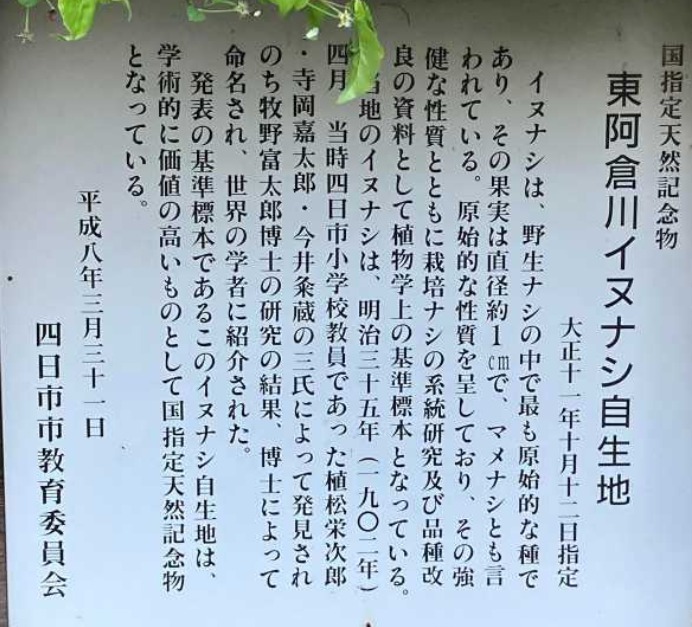 国指定天然記念物
東阿倉川イヌナシ自生地
大正十一年十月十二日指定
イヌナシは、野生ナシの中で最も原始的な種で
あり、その果実は直径約1㎝で、マメナシとも言
われている。原始的な性質を呈しており、その強
健な性質とともに栽培ナシの系統研究及び品種改
良の資料として植物学上の基準標本となっている。
当地のイヌナシは、明治三十五年(一九〇二年)
四月、当時四日市小学校教員であった植松栄次郎
・寺岡嘉太郎・今井粂蔵の三氏によって発見され
のち牧野富太郎博士の研究の結果、博士によって
命名され、世界の学者に紹介された。
発表の基準標本であるこのイヌナシ自生地は、
学術的に価値の高いものとして国指定天然記念物
となっている。
平成八年三月三十一日
四日市市教育委員会